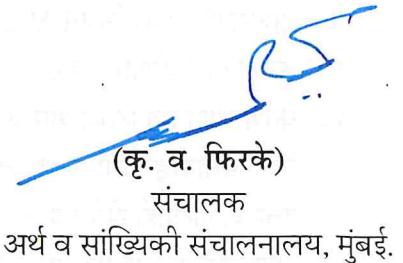 (कृ. व. फिरके)
संचालक
अर्थ व सांख्यिकी संचालनालय, मुंबई.